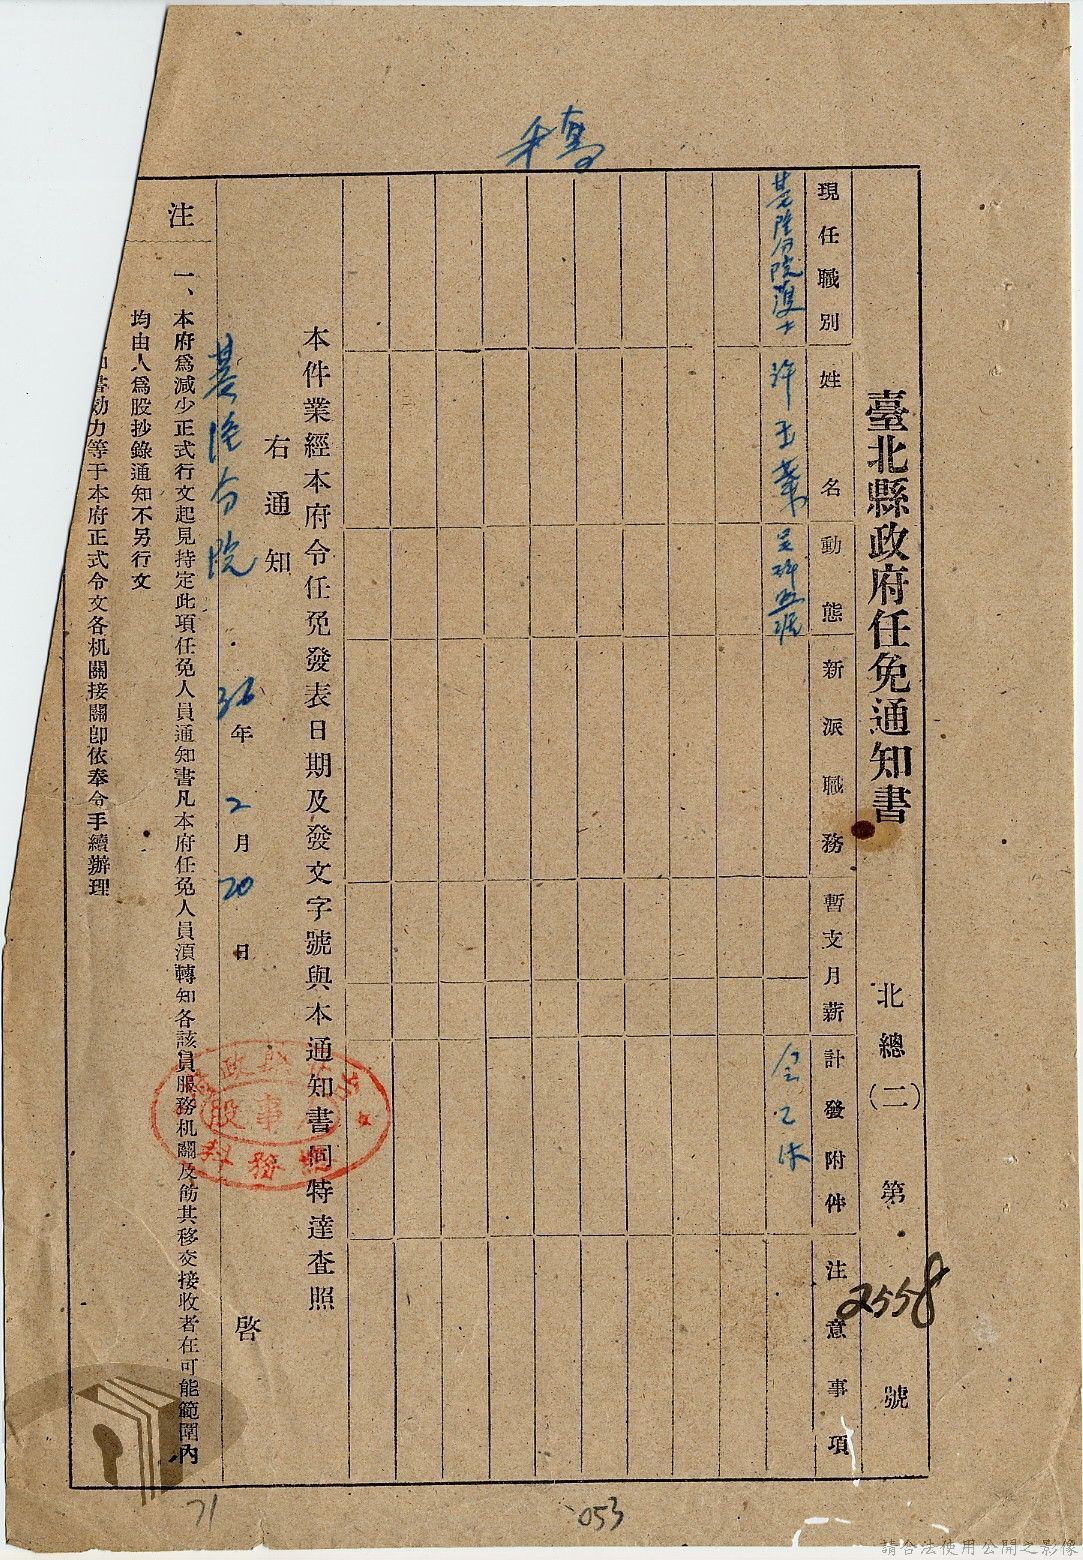 稿
臺北縣政府任免通知書
北總(二)第2558號
現任職別
姓名
動態
新派職務
暫支月薪
計發附件
注意事項
基隆分院護士
許玉葉
令乙件
本件業經本府令任免發表日期及發文字號與本通知書同特達查照
右通知
基隆分院
36年2月20日
啓
注
一、本府爲減少正式行文起見持定此項任免人員通知書凡本府任免人員湏轉知各該員服務机關及飭其移交接收者在可能範圍內
均由人爲股抄錄通知不另行文
知書効力等于本府正式令文各机關接關卽依奉令手續辦理
71
053
請合法使用公開之影像